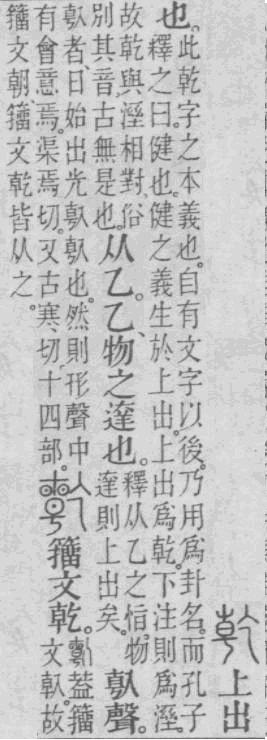 上出
也。此乾字之本義也。自有文字以後。乃用爲卦名。而孔子
釋之曰。健也。健之義生於上出。上出爲乾。下注則爲溼。
故乾與溼相對。俗
別其音。古無是也。从乙。乙、物之達也。釋从乙之恉。物
達則上出矣。倝聲。
倝者、日始出光倝倝也。然則形聲中
有會意焉。渠焉切。又古寒切。十四部。籒文乾。葢籒
文倝。故
籒文朝、籒文乾皆从之。